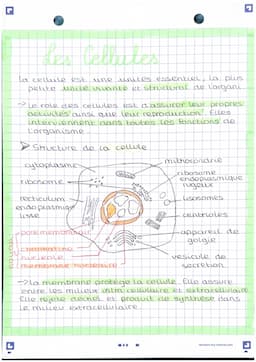 Les Cellules
la cellule est une unités essentiel, la plus
petite unité vivante et structural de l'organi
-> Le role des cellules est d'assurer leur propres
activités ainsi que leur reproduction. Elles
interviennent dans toutes les fonctions de
l'organisme
➤ Structure de la cellule
cytoplasme
mitochondrie
ribosome
ribosome
endoplasmique
rugeux
reticulum
endoplasmique
lisse
lisosomes
centrioles
pore membranaire
appareil de
golgie
noyau
chromatine
nucleole
membrane nucléaire
vesicule de
secretion
-> La membrand protège la cellule. Elle assure
entre les milieux intra cellulaire et extracellulaire
Elle rejete dechet et produit de synthèse dans
le milieu extracellulaire.